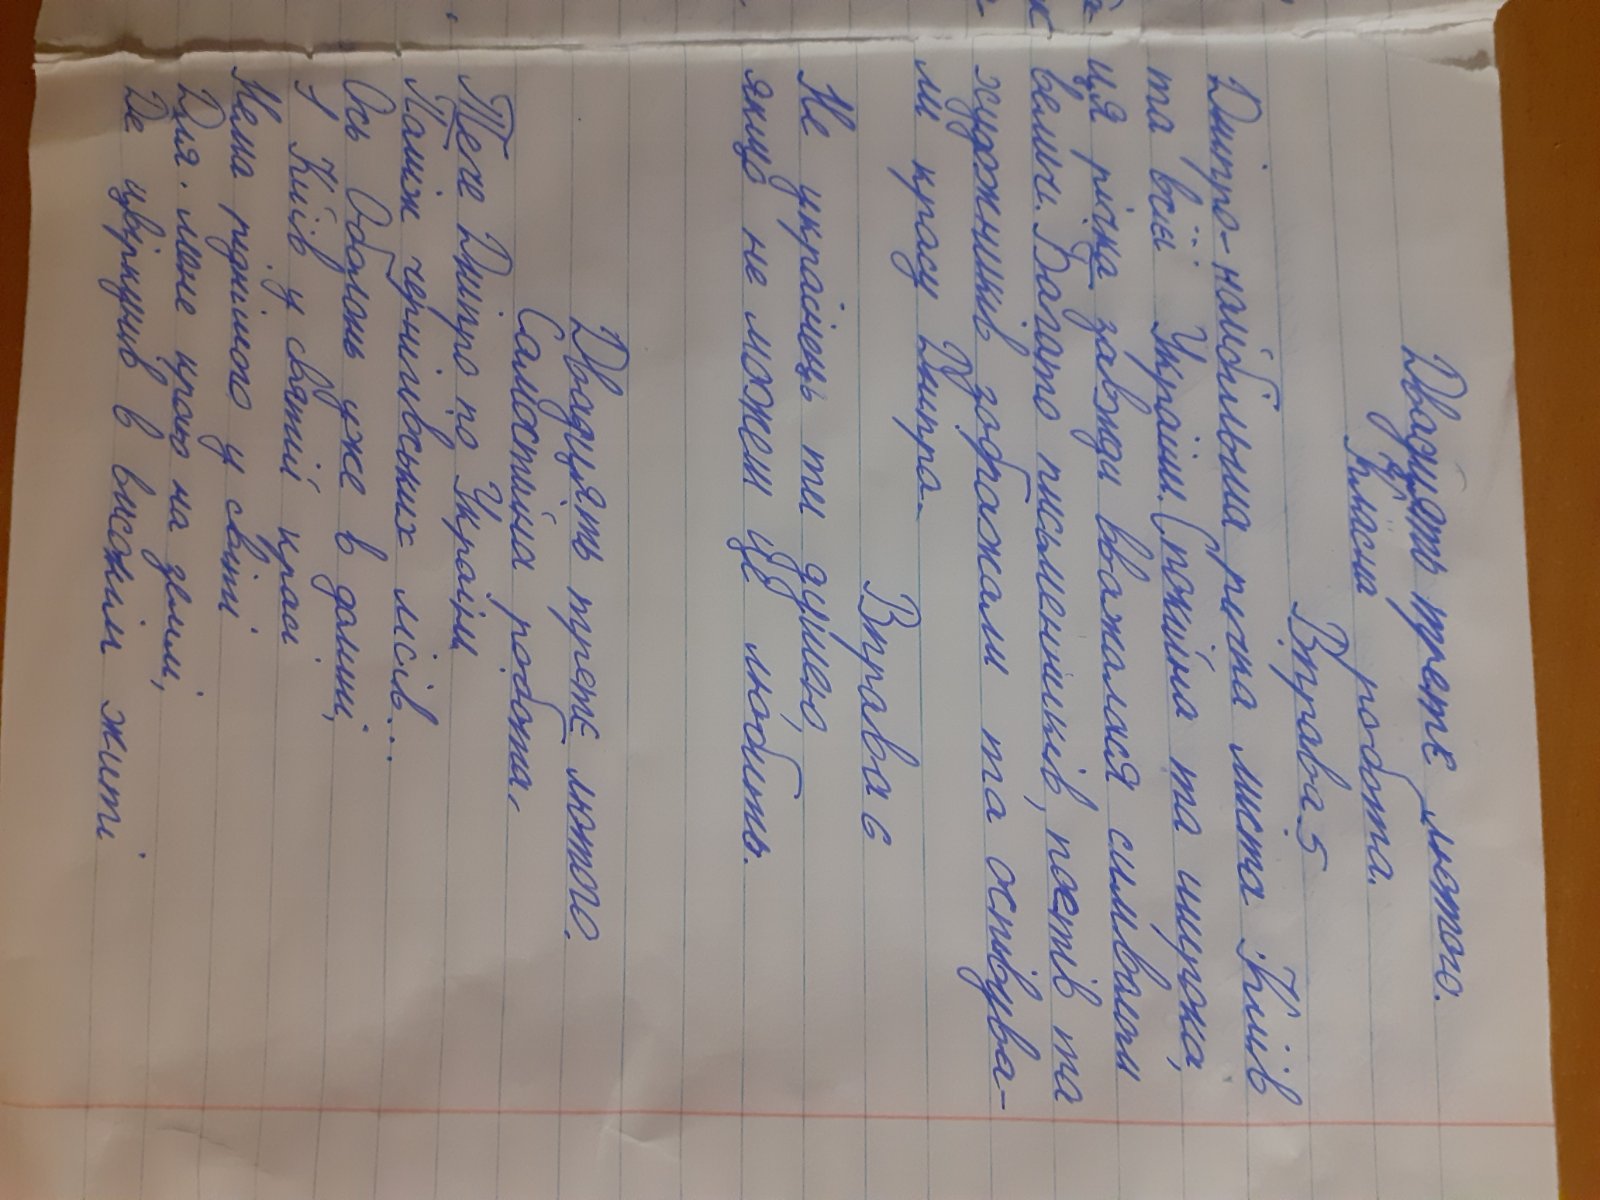 Двадцять третє лютого.
Класна робота.
Вправа 5
Дніпро-найбільша річка міста Київ
та всієї України. Спокійна та широка,
ця річка завжди вважалася символом
величі. Багато письменників, поетів та
художників зображали та оспівува-
ли красу Дніпра.
Вправа 6
Не українець ти душею,
якщо не можеш це любить.
Двадцять третє лютого.
Самостійна робота.
Тече Дніпро по Україні
Поміж чернігівських лісів...
Ось Оболонь уже в долині,
І Київ у святій красі
Нема ріднішого у світі
Для мене краю на землі,
Де цвіркунів в високім житі